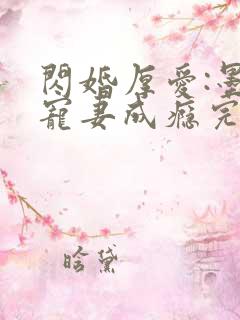 閃婚厚愛:墨
寵妻成癮完
晗黛